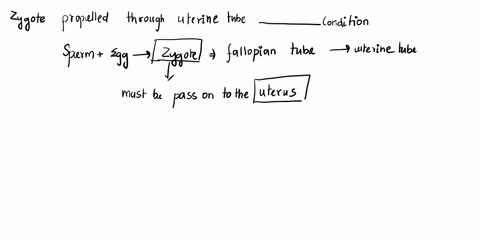 Zygote propelled through uterine tube ________ Condition
Sperm + Egg → Zygote ⇒ fallopian tube → uterine tube
must be pass on to the uterus